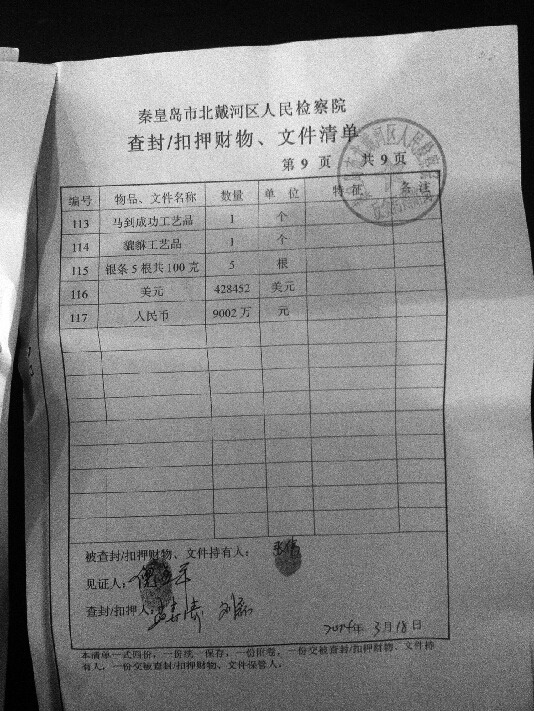 秦皇岛市北戴河区人民检察院
查封/扣押财物、文件清单
第 9 页 共 9 页
编号 物品、文件名称 数量 单 位 特 征 备 注
113 马到成功工艺品 1 个
114 貔貅工艺品 1 个
115 银条5根共100克 5 根
116 美元 428452 美元
117 人民币 9002万 元
被查封/扣押财物、文件持有人:
见证人:
查封/扣押人:
2014年 3月18日
本清单一式四份,一份统一保存,一份附卷,一份交被查封/扣押财物、文件持
有人,一份交被查封/扣押财物、文件保管人。